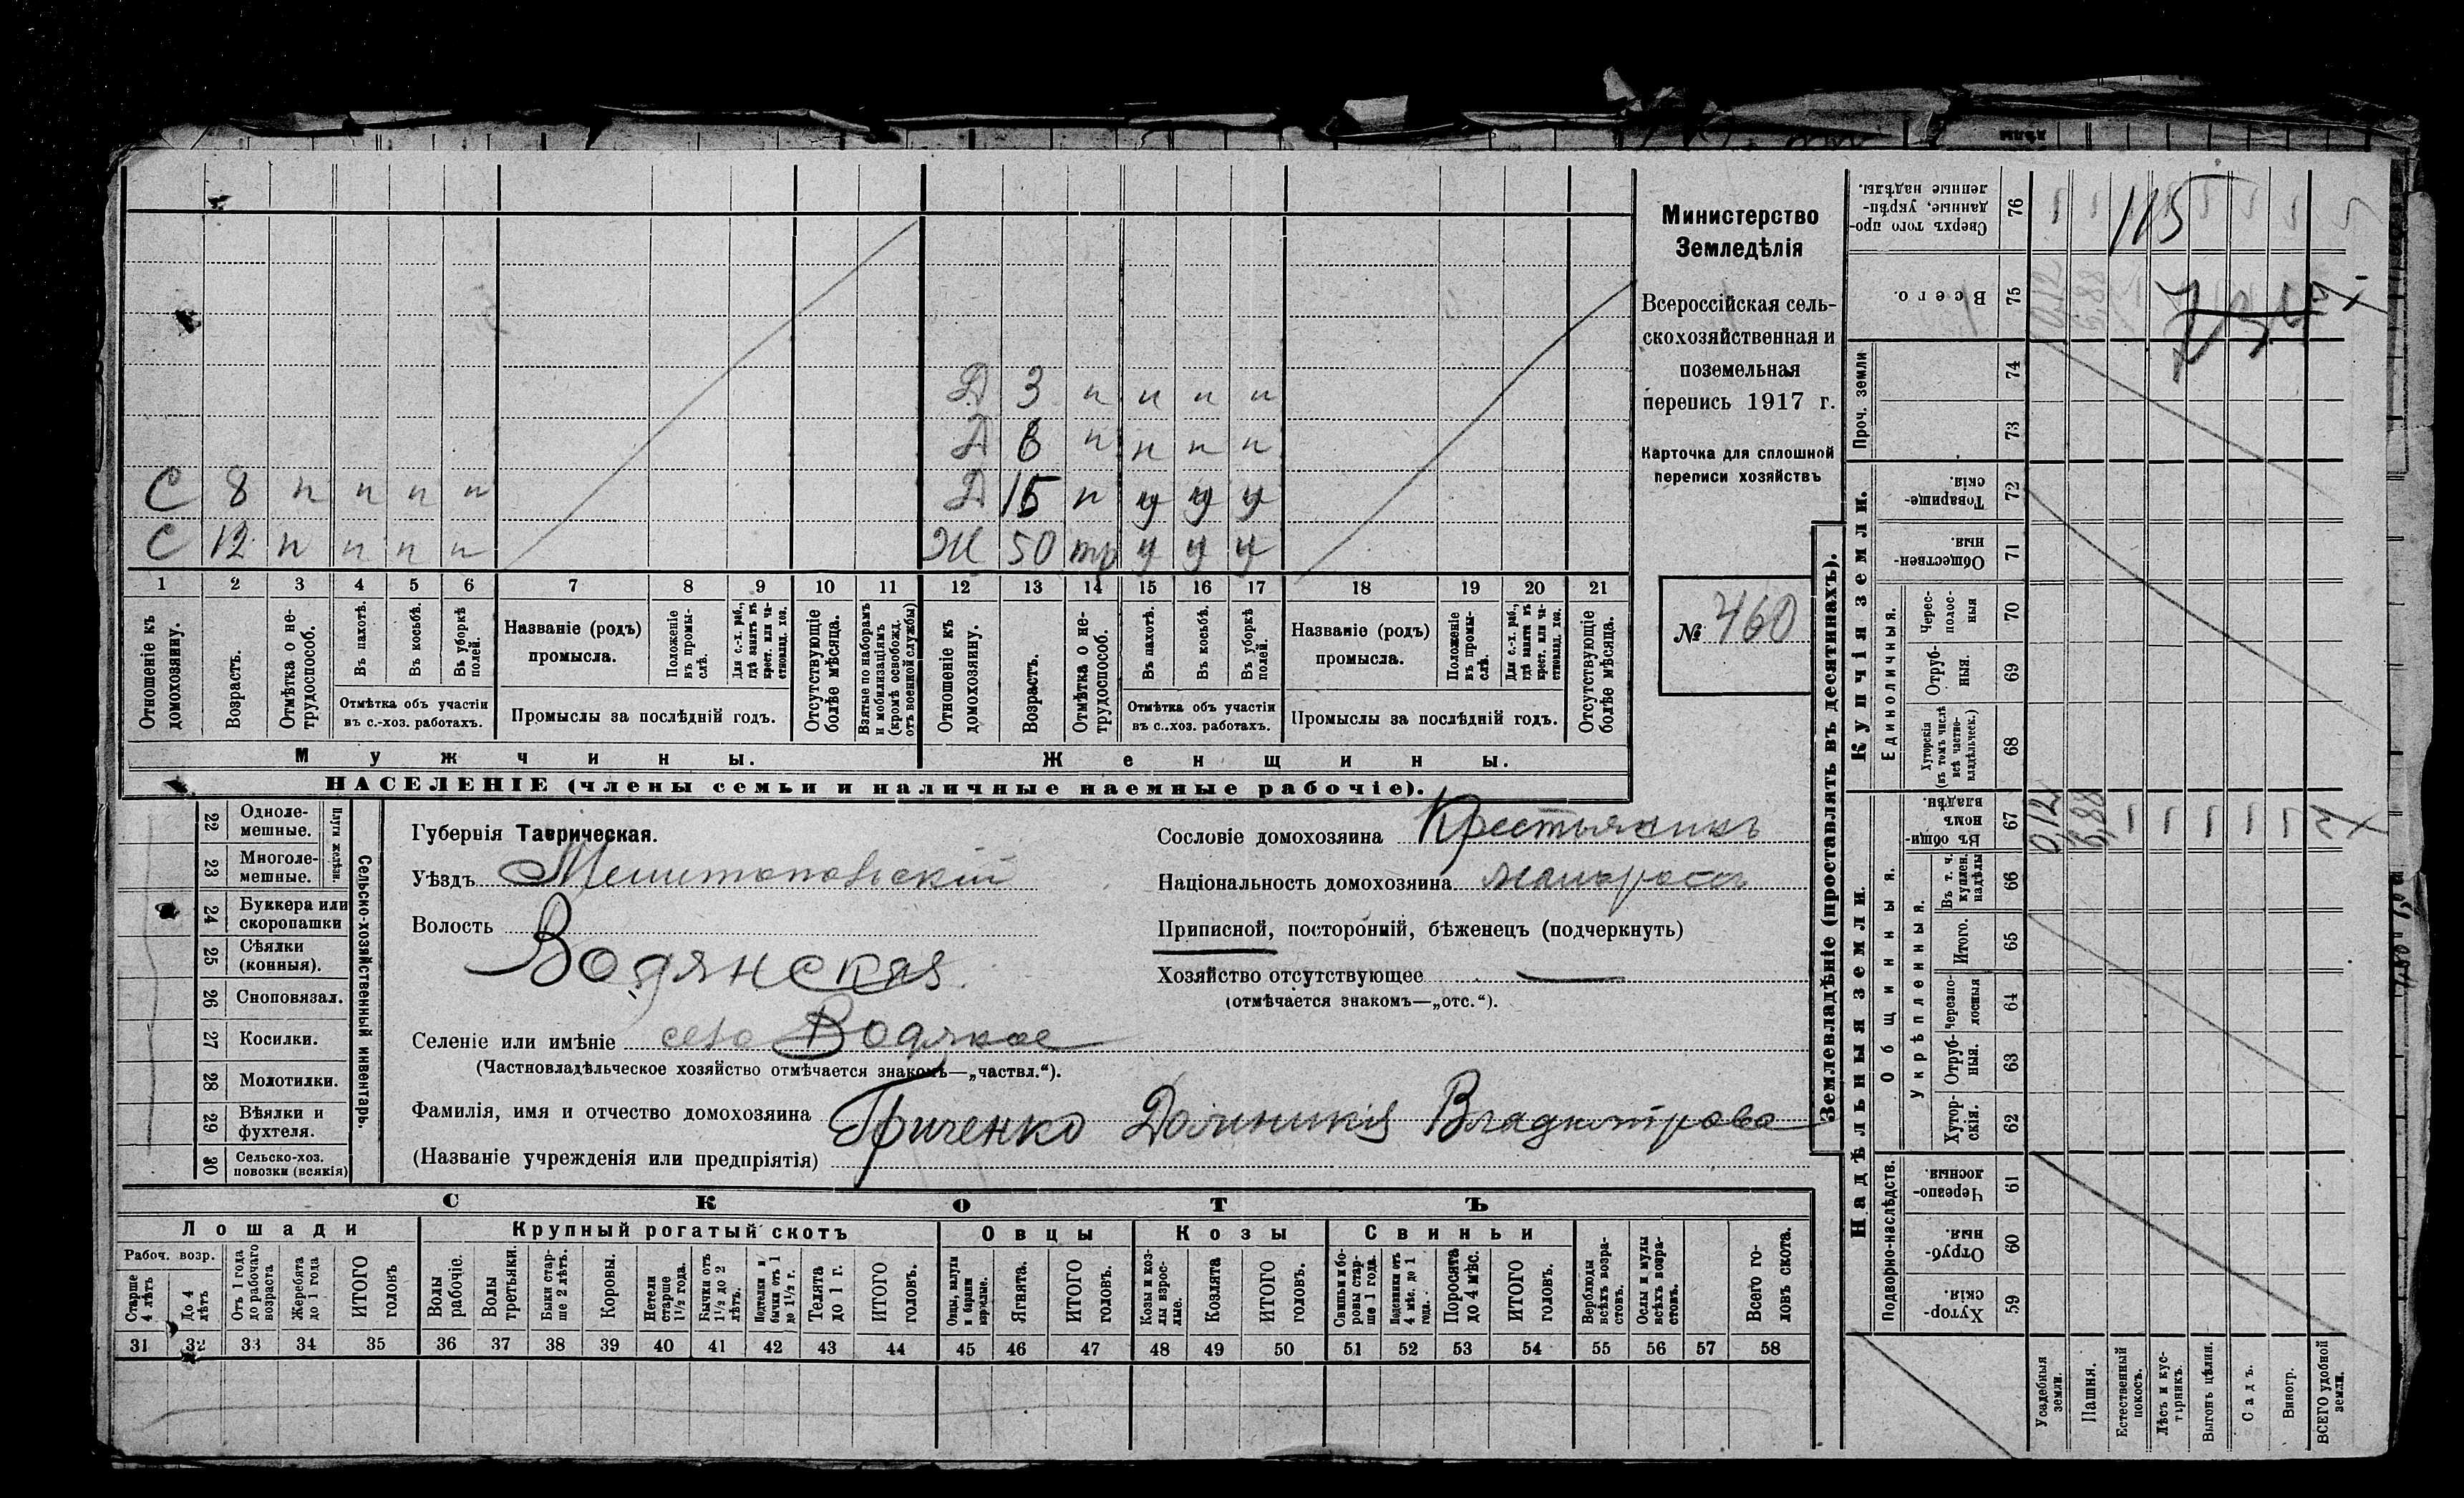 С 8 п п п п
С 12 п п п п
Д 3 п п п п
Д 6 п п п п
Д 15 п у у у
Ж 50 тр у у у
1 2 3 4 5 6 7 8 9 10 11 12 13 14 15 16 17 18 19 20 21
Отношеніе къ домохозяину.
Возрастъ.
Отмѣтка о не-трудоспособ.
Въ пахотѣ.
Въ косьбѣ.
Въ уборкѣ полей.
Отмѣтка объ участіи
въ с.-хоз. работахъ.
Названіе (родъ)
промысла.
Положеніе въ промы-слѣ.
Для с.-х. раб., гдѣ занятъ въ крест. или ча-стновлад. хоз.
Промыслы за послѣдній годъ.
Отсутствующіе болѣе мѣсяца.
Взятые по наборамъ и мобилизаціямъ (кромѣ освобожд. отъ военной службы)
Отношеніе къ домохозяину.
Возрастъ.
Отмѣтка о не-трудоспособ.
Въ пахотѣ.
Въ косьбѣ.
Въ уборкѣ полей.
Отмѣтка объ участіи
въ с.-хоз. работахъ.
Названіе (родъ)
промысла.
Положеніе въ промы-слѣ.
Для с.-х. раб., гдѣ занята въ крест. или ча-стновлад. хоз.
Промыслы за послѣдній годъ.
Отсутствующіе болѣе мѣсяца.
Мужчины.
Женщины.
НАСЕЛЕНІЕ (члены семьи и наличные наемные рабочіе).
Министерство
Земледѣлія
Всероссійская сель-
скохозяйственная и
поземельная
перепись 1917 г.
Карточка для сплошной
переписи хозяйствъ
№ 460
22 Одноле-мешные.
23 Многоле-мешные.
Плуги желѣзн.
24 Буккера или скоропашки
25 Сѣялки (конныя).
26 Сноповязал.
27 Косилки.
28 Молотилки.
29 Вѣялки и фухтеля.
30 Сельско-хоз. повозки (всякія)
Сельско-хозяйственный инвентарь.
Губернія Таврическая.
Уѣздъ Мелитопольскій
Волость
Водянская
Селеніе или имѣніе село Водяное
(Частновладѣльческое хозяйство отмѣчается знакомъ—„частвл.“).
Фамилія, имя и отчество домохозяина Гриченко Доминикія Владимірова
(Названіе учрежденія или предпріятія)
Сословіе домохозяина Крестьянинъ
Національность домохозяина малороссъ
Приписной, посторонній, бѣженецъ (подчеркнуть)
Хозяйство отсутствующее —
(отмѣчается знакомъ—„отс.“).
СКОТЪ
Лошади
Крупный рогатый скотъ
Овцы
Козы
Свиньи
Рабоч. возр.
Старше 4 лѣтъ
До 4 лѣтъ
Отъ 1 года до рабочаго возраста
Жеребята до 1 года
ИТОГО головъ
Волы рабочіе.
Волы третьяки.
Быки стар-ше 2 лѣтъ.
Коровы.
Нетели старше 1½ года.
Бычки отъ 1½ до 2 лѣтъ.
Подтелки и бычки отъ 1 до 1½ г.
Телята до 1 г.
ИТОГО головъ.
Овцы, валухи и бараны взрослые.
Ягнята.
ИТОГО головъ.
Козы и коз-лы взрос-лые.
Козлята
ИТОГО головъ.
Свиньи и бо-ровы стар-ше 1 года.
Подсвинки отъ 4 мѣс. до 1 года.
Поросята до 4 мѣс.
ИТОГО головъ.
Верблюды всѣхъ возра-стовъ.
Ослы и мулы всѣхъ возра-стовъ.
Всего го-ловъ скота.
31 32 33 34 35 36 37 38 39 40 41 42 43 44 45 46 47 48 49 50 51 52 53 54 55 56 57 58
Землевладѣніе (проставлять въ десятинахъ).
Надѣльныя земли.
Купчія земли.
Проч. земли
Сверхъ того про-данные, укрѣп-ленные надѣлы. 76
115
Всего. 75
74
73
Товарище-скія. 72
Обществен-ныя. 71
Единоличныя.
Черес-полос-ныя 70
Отруб-ныя. 69
Хуторскія (въ томъ числѣ всѣ частно-владѣльческ.) 68
Общинныя.
Въ общин-номъ владѣн. 67
0,12 5,88
Укрѣпленныя.
Въ т. ч. куплен. надѣлы 66
Итого. 65
черезпо-лосныя 64
Отруб-ныя. 63
Хутор-скія. 62
Подворно-наслѣдств.
Черезпо-лосныя. 61
Отруб-ныя 60
Хутор-скія. 59
Усадебныя земли.
Пашня.
Естественный покосъ.
Лѣсъ и кус-тарникъ.
Выгонъ цѣлин.
Садъ.
Виногр.
ВСЕГО удобной земли.